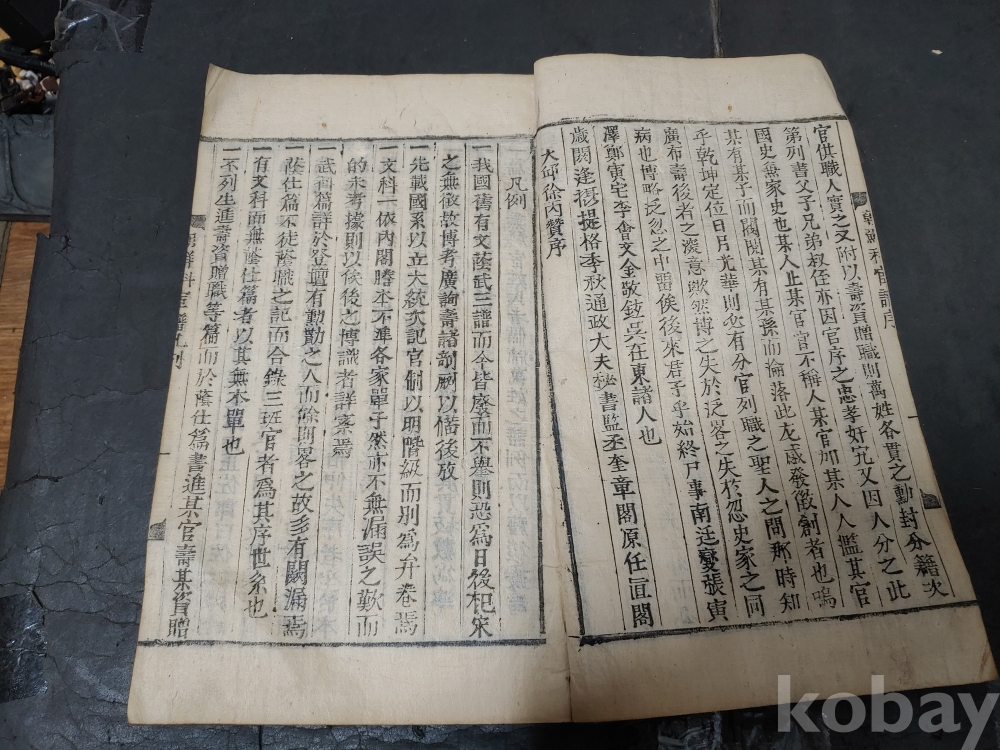 朝鮮科宦譜序
官供職人實之又附以壽資贈職則萬姓各貫之勳封分籍次
第列書父子兄弟叔侄亦因官序之忠孝奸宄又因人分之此
國史無家史也某人止某官官不稱人某官加某人人濫其官
某有某子而閥閱某有某孫而淪落此尤感發徵創者也嗚
乎乾坤定位日月光華則必有分官列職之聖人之間耶時知
廣布壽後者之深意歟然博之失於泛畧之失於忽史家之同
病也博畧泛忽之中畱俟後來君子乎始終尸事南廷燮張寅
澤鄭寅宅李會文金敬鉉吳在東諸人也
歲閼逢攝提格季秋通政大夫秘書監丞奎章閣原任直閣
大邱徐丙贊序
凡例
一我國舊有文蔭武三譜而今皆廢而不擧則恐爲日後杞宋
之無徵故博考廣詢壽諸剞劂以備後攷
一先載國系以立大統次記官制以明階級而別爲弁卷焉
一文科一依內閣謄本不準各家單子然亦不無漏誤之歎而
的未考據則以俟後之博識者詳案焉
一武科篇詳於登壇有勳勩之人而餘則畧之故多有闕漏焉
一蔭仕篇不徒蔭職之記而合錄三班官者爲其序世系也
一有文科而無蔭仕篇者以其無本單也
一不列生進壽資贈職等篇而於蔭仕篇書進某官壽某資贈
朝鮮科宦譜凡例
kobay